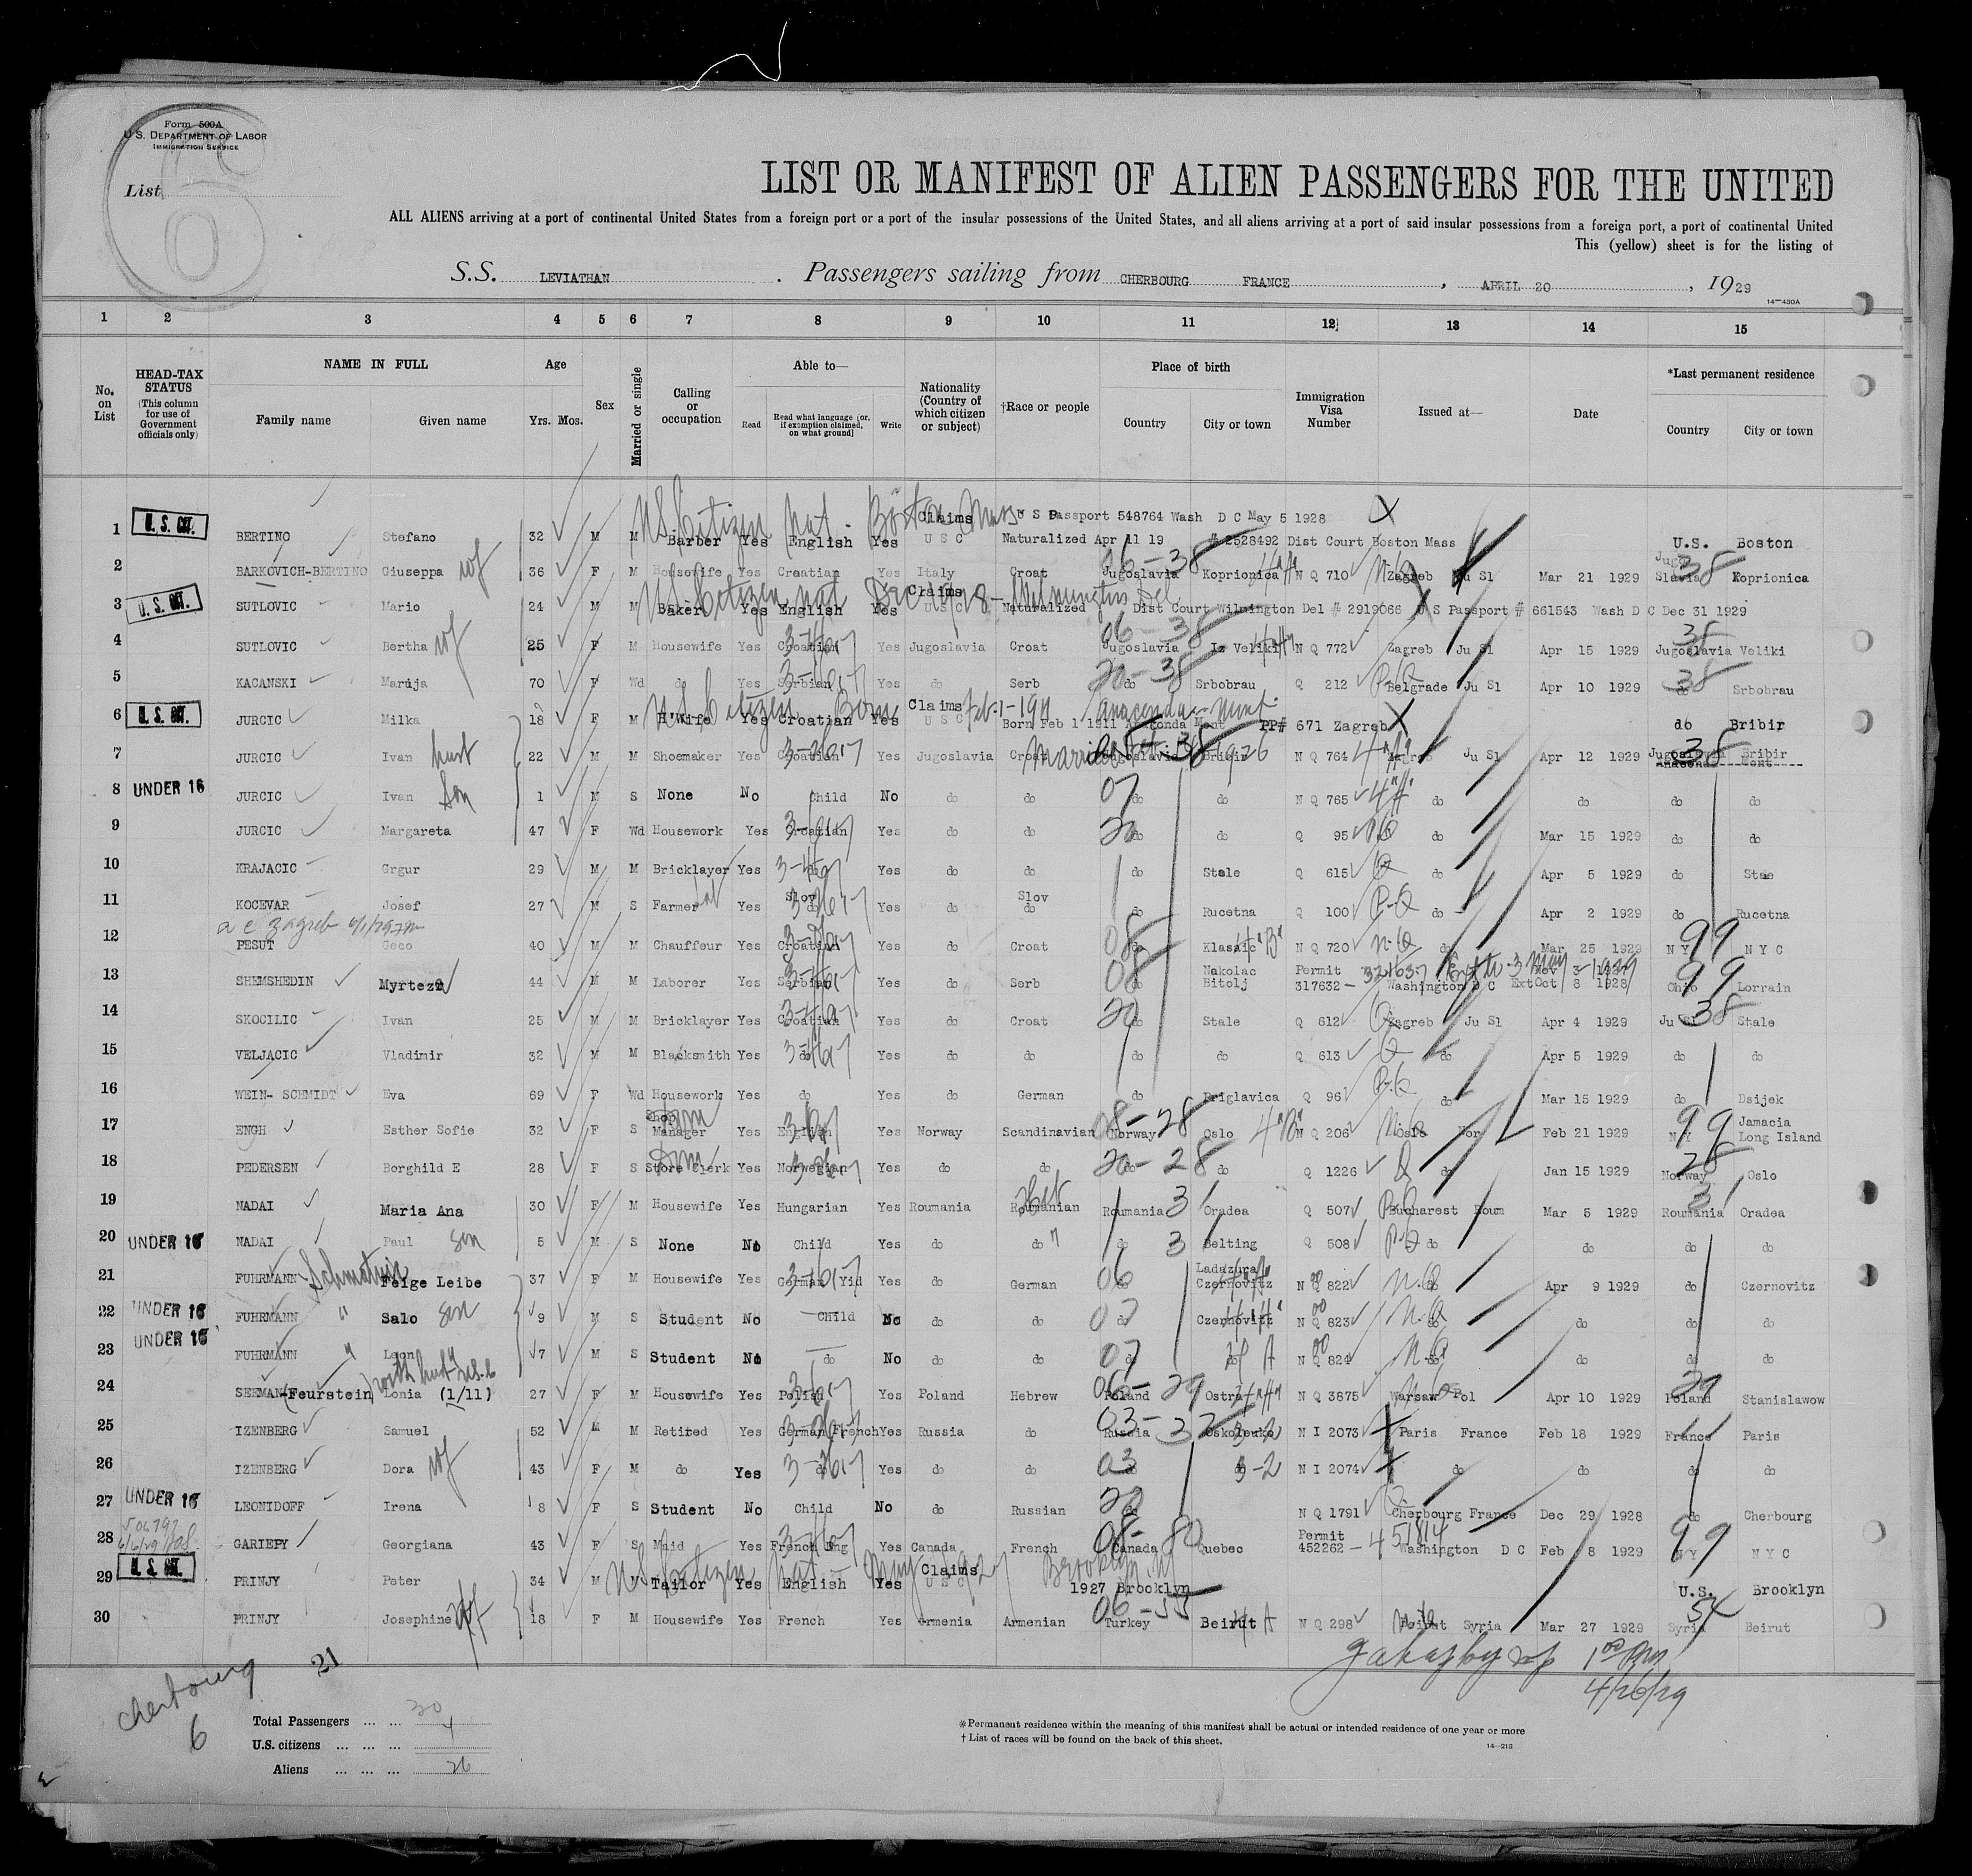 Form 500A
U. S. DEPARTMENT OF LABOR
IMMIGRATION SERVICE
List
6
LIST OR MANIFEST OF ALIEN PASSENGERS FOR THE UNITED
ALL ALIENS arriving at a port of continental United States from a foreign port or a port of the insular possessions of the United States, and all aliens arriving at a port of said insular possessions from a foreign port, a port of continental United
This (yellow) sheet is for the listing of
S.S. LEVIATHAN . Passengers sailing from CHERBOURG FRANCE , APRIL 20 , 1929
14—430A
1 2 3 4 5 6 7 8 9 10 11 12 13 14 15
No. on List
HEAD-TAX STATUS (This column for use of Government officials only)
NAME IN FULL Family name Given name
Age Yrs. Mos.
Sex
Married or single
Calling or occupation
Able to— Read Read what language (or, if exemption claimed, on what ground) Write
Nationality (Country of which citizen or subject)
†Race or people
Place of birth Country City or town
Immigration Visa Number
Issued at—
Date
*Last permanent residence Country City or town
US Citizen Nat. Boston Mass Claims U S Passport 548764 Wash D C May 5 1928 X
1 U. S. CIT. BERTINO Stefano 32 M M Barber Yes English Yes U S C Naturalized Apr 11 19 # 2528492 Dist Court Boston Mass U.S. Boston
2 BARKOVICH-BERTINO Giuseppa wf 36 F M Housewife Yes Croatian Yes Italy Croat Jugoslavia 06-38 Koprionica N Q 710 Zagreb Ju Sl Mar 21 1929 Jugo Slavia 38 Koprionica
3 U. S. CIT. SUTLOVIC Mario 24 M M Baker Yes English Yes Claims U S C Naturalized Dist Court Wilmington Del # 2919066 U S Passport # 661543 Wash D C Dec 31 1929
4 SUTLOVIC Bertha wf 25 F M Housewife Yes Croatian Yes Jugoslavia Croat Jugoslavia 06-38 Iz Veliki N Q 772 Zagreb Ju Sl Apr 15 1929 Jugoslavia 38 Veliki
5 KACANSKI Maruja 70 F Wd do Yes Serbian Yes do Serb do 20-38 Srbobrau Q 212 Belgrade Ju Sl Apr 10 1929 do 38 Srbobrau
6 U. S. CIT. JURCIC Milka 18 F M H'Wife Yes Croatian Yes Claims U S C Born Feb 1 1911 Anaconda Mont PP# 671 Zagreb X do Bribir
7 JURCIC Ivan hust 22 M M Shoemaker Yes Croatian Yes Jugoslavia Croat Jugoslavia Bribir N Q 764 Zagreb Ju Sl Apr 12 1929 Jugoslavia 38 Bribir
8 UNDER 16 JURCIC Ivan Son 1 M S None No Child No do do do 07 do N Q 765 do do do do
9 JURCIC Margareta 47 F Wd Housework Yes Croatian Yes do do do 20 do Q 95 do Mar 15 1929 do do
10 KRAJACIC Grgur 29 M M Bricklayer Yes do Yes do do do Stale Q 615 do Apr 5 1929 do Stae
11 KOCEVAR Josef 27 M S Farmer Yes Slov do Yes do Slov do do Rucetna Q 100 do Apr 2 1929 do Rucetna
12 PESUT 40 M M Chauffeur Yes Croatian Yes do Croat do 08 Klasaic N Q 720 do Mar 25 1929 N Y 99 N Y C
13 SHEMSHEDIN Myrteza 44 M M Laborer Yes Serbian Yes do Serb do 08 Nakolac Bitolj Permit 317632 Washington D C Ext Oct 8 1928 Ohio 99 Lorrain
14 SKOCILIC Ivan 25 M M Bricklayer Yes Croatian Yes do Croat do 20 Stale Q 612 Zagreb Ju Sl Apr 4 1929 Ju Sl 38 Stale
15 VELJACIC Vladimir 32 M M Blacksmith Yes do Yes do do do do Q 613 do Apr 5 1929 do do
16 WEIN- SCHMIDT Eva 69 F Wd Housework Yes do Yes do German do Priglavica Q 96 do Mar 15 1929 do Dsijek
17 ENGH Esther Sofie 32 F S Shop Manager Yes English Yes Norway Scandinavian Norway 08-28 Oslo N Q 206 Oslo Nor Feb 21 1929 N Y 99 Jamacia Long Island
18 PEDERSEN Borghild E 28 F S Store Clerk Yes Norwegian Yes do do do 20-28 do Q 1226 do Jan 15 1929 Norway 28 Oslo
19 NADAI Maria Ana 30 F M Housewife Yes Hungarian Yes Roumania Roumanian Roumania Oradea Q 507 Bucharest Roum Mar 5 1929 Roumania Oradea
20 UNDER 16 NADAI Paul son 5 M S None No Child Yes do do do Belting Q 508 do do do do
21 FUHRMANN Feige Leibe 37 F M Housewife Yes German Yid Yes do German do 06 Ladazura Czernovitz N Q 822 do Apr 9 1929 do Czernovitz
22 UNDER 16 FUHRMANN " Salo son 9 M S Student No Child No do do do 07 Czernovitz N Q 823 do do do do
23 UNDER 16 FUHRMANN " Leon 7 M S Student No do No do do do 07 do N Q 824 do do do do
24 SEEMAN-(Feurstein) Lonia (1/11) 27 F M Housewife Yes Polish Yes Poland Hebrew Poland 06-29 Ostra N Q 3875 Warsaw Pol Apr 10 1929 Poland 29 Stanislawow
25 IZENBERG Samuel 52 M M Retired Yes German French Yes Russia do Russia 03-37 N I 2073 Paris France Feb 18 1929 France Paris
26 IZENBERG Dora wf 43 F M do Yes do Yes do do do 03 do N I 2074 do do do do
27 UNDER 16 LEONIDOFF Irena 8 F S Student No Child No do Russian do 20 N Q 1791 Cherbourg France Dec 29 1928 do Cherbourg
28 GARIEPY Georgiana 43 F S Maid Yes French Eng Yes Canada French Canada 08-80 Quebec Permit 452262 Washington D C Feb 8 1929 N Y 99 N Y C
29 U. S. CIT. PRINJY Peter 34 M M Tailor Yes English Yes Claims U S C 1927 Brooklyn U.S. Brooklyn
30 PRINJY Josephine wf 18 F M Housewife Yes French Yes Armenia Armenian Turkey 06-55 Beirut N Q 298 Beirut Syria Mar 27 1929 Syria 54 Beirut
21
4/26/29
cherbourg
6
Total Passengers ... ... 30
U.S. citizens ... ... ... 4
Aliens ... ... ... 26
*Permanent residence within the meaning of this manifest shall be actual or intended residence of one year or more
† List of races will be found on the back of this sheet.
14—213